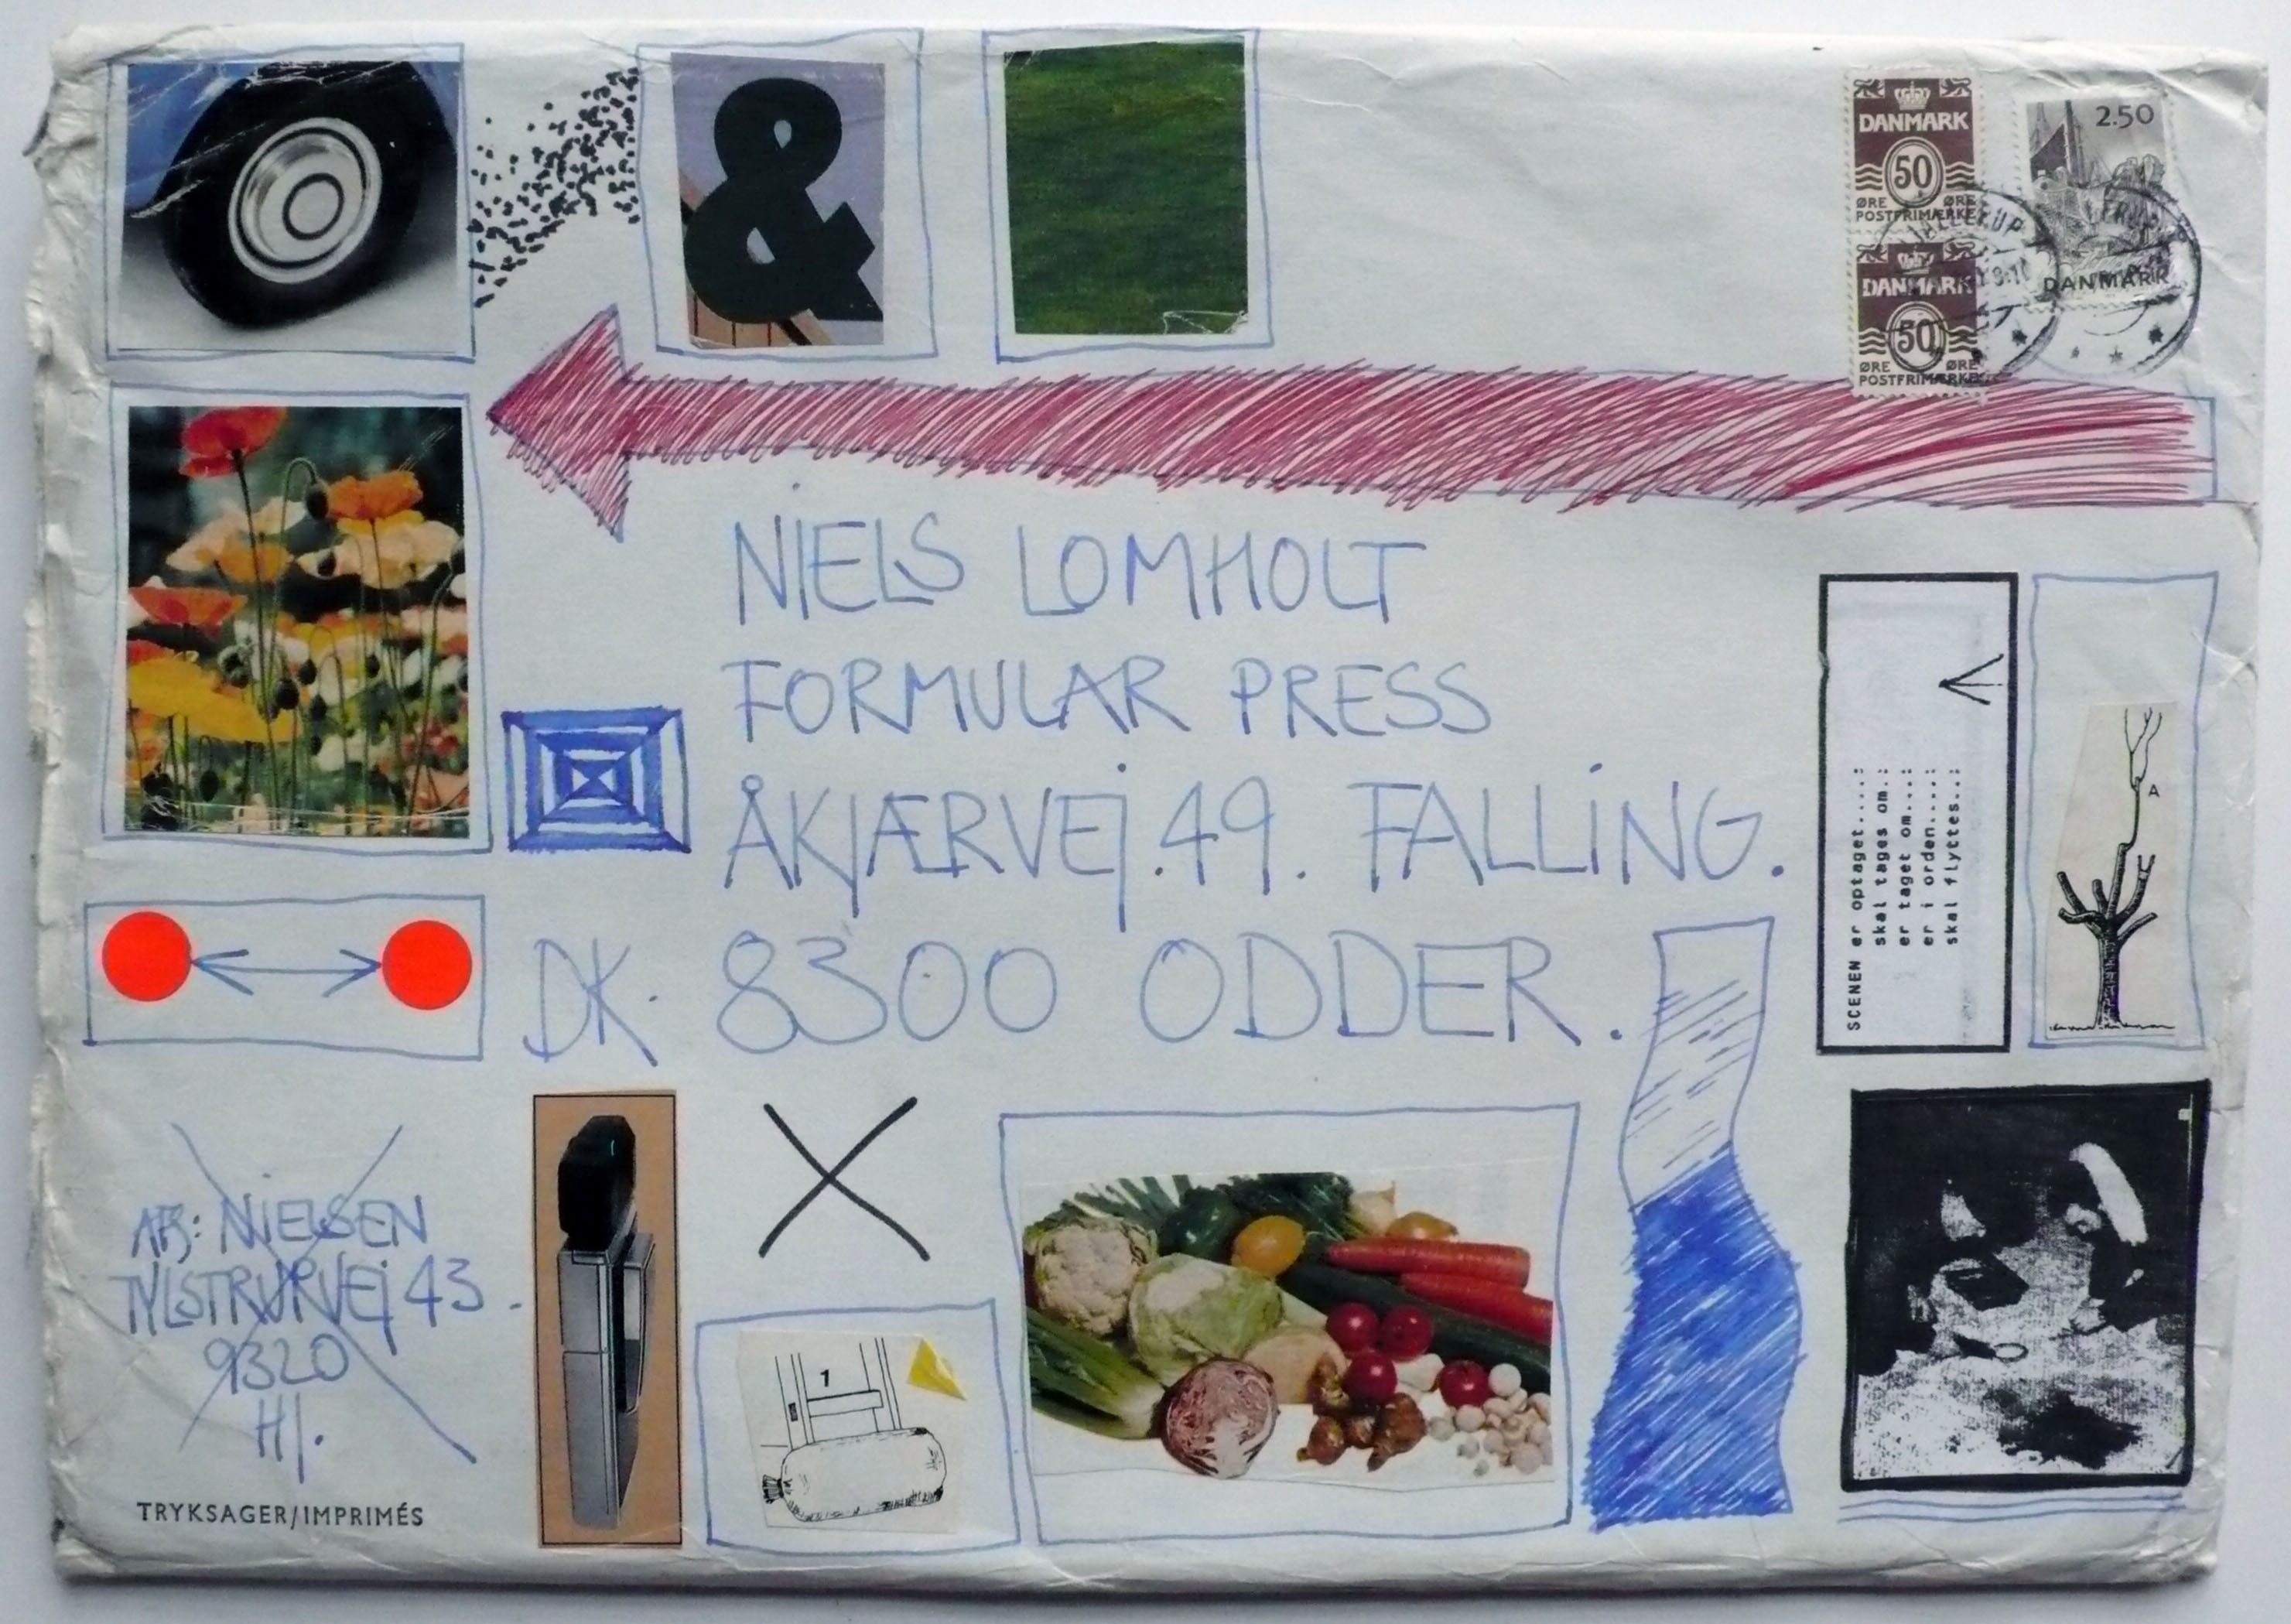 &
DANMARK
50
ØRE ØRE
POSTFRIMÆRKE
DANMARK
50
ØRE ØRE
POSTFRIMÆRKE
2.50
DANMARK
NIELS LOMHOLT
FORMULAR PRESS
ÅKJÆRVEJ.49. FALLING.
DK. 8300 ODDER.
SCENEN er optaget.....:
skal tages om.:
er taget om...:
er i orden....:
skal flyttes..:
A
AFS: NIELSEN
TYLSTRUPVEJ 43.
9320
HJ.
1
TRYKSAGER/IMPRIMÉS